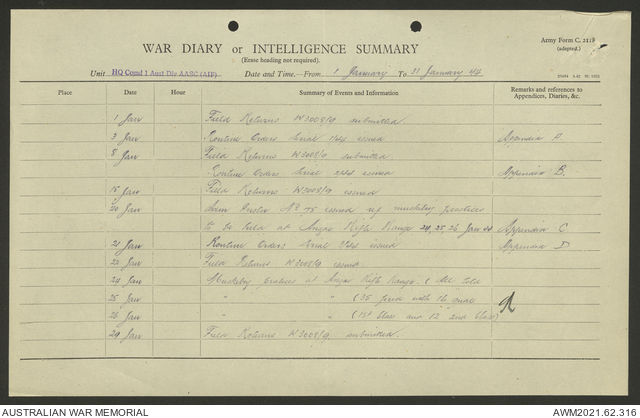 Army Form C. 2118
(adapted.)
WAR DIARY or INTELLIGENCE SUMMARY
(Erase heading not required).
Unit HQ Comd 1 Aust Div AASC (AIF) Date and Time.—From 1 January To 31 January 44
Place Date Hour Summary of Events and Information Remarks and references to Appendices, Diaries, &c.
1 Jan Field Returns W3008/9 submitted
3 Jan Routine Orders Serial 1/44 issued Appendix A.
8 Jan Field Returns W3008/9 submitted.
Routine Orders Serial 2/44 issued Appendix B.
15 Jan Field Returns W3008/9 issued
20 Jan No 75 issued musketry practices
to be held at Rifle Range 24, 25, 26 Jan 44 Appendix C
21 Jan Routine Orders Serial 3/44 issued Appendix D
22 Jan Field Returns W3008/9 issued.
24 Jan Musketry practices at Rifle Range. (
25 Jan " " (35 fired with
26 Jan " " (1st Class and 12 2nd Class)
29 Jan Field Returns W3008/9 submitted.
AUSTRALIAN WAR MEMORIAL
AWM2021.62.316